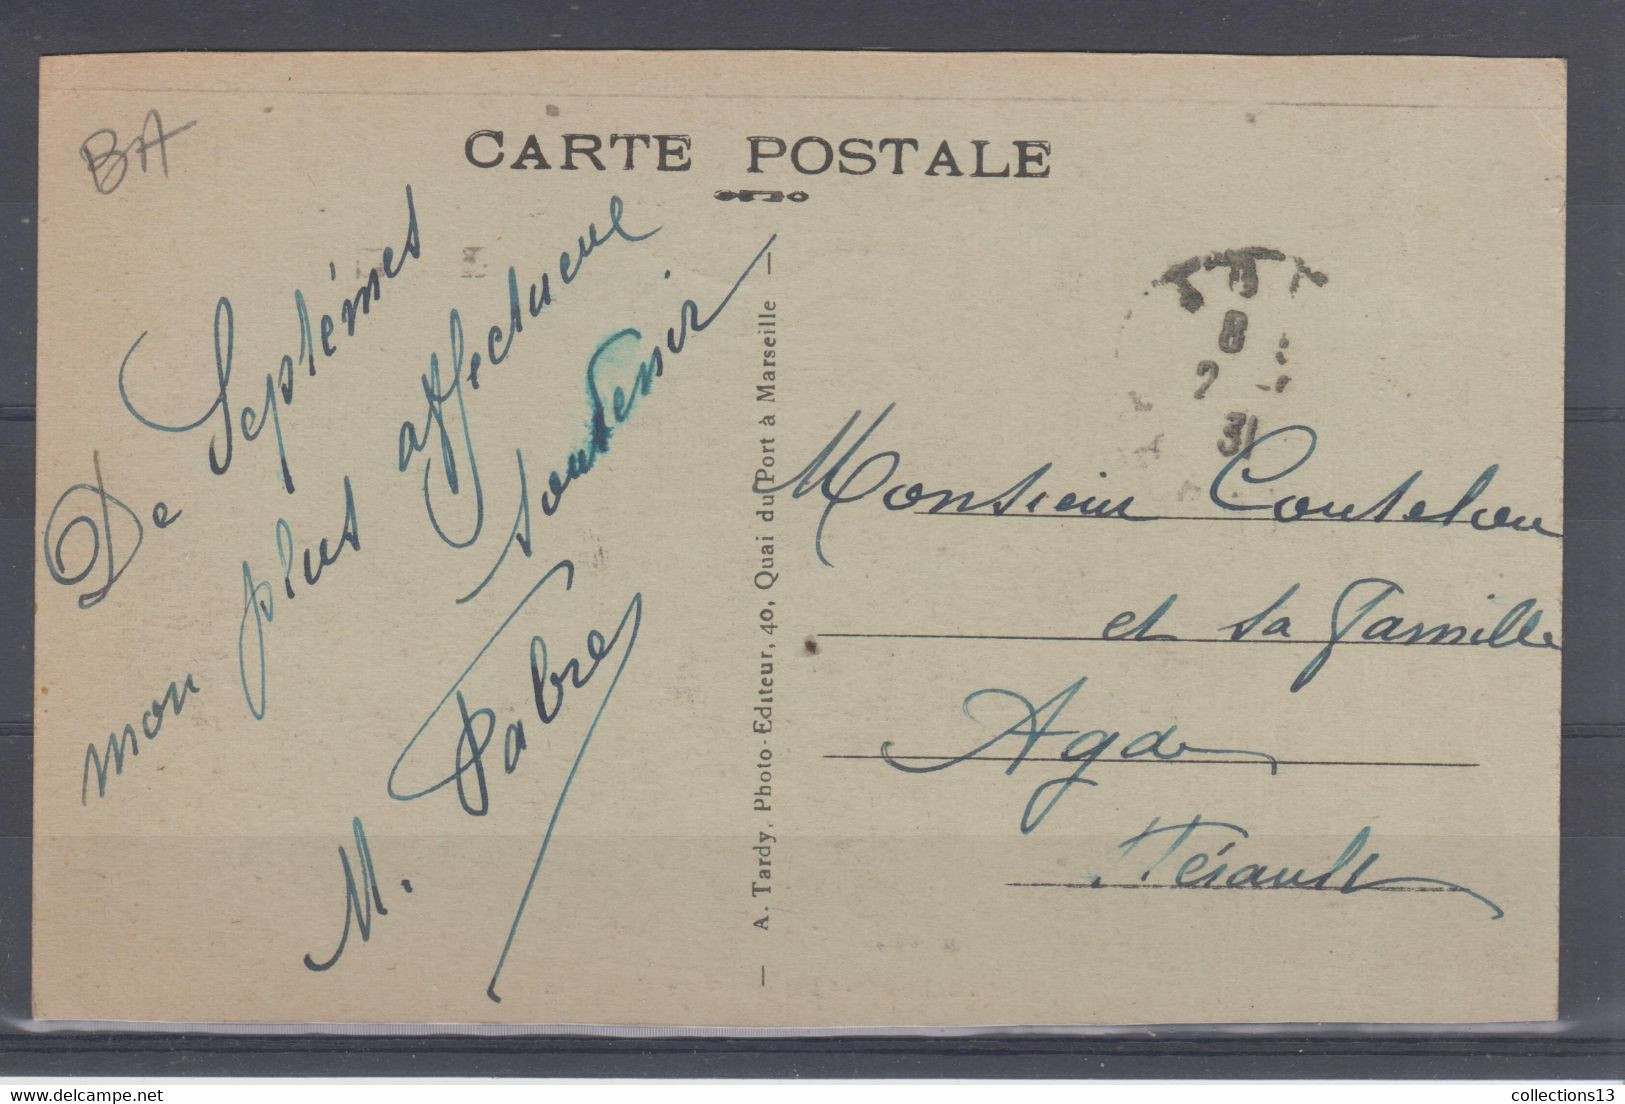 BA
CARTE POSTALE
De Septèmes
mon plus affectueux
souvenir
M. Fabre
A. Tardy, Photo-Editeur, 40, Quai du Port à Marseille
8
31
Monsieur Coutelou
et sa famille
Agde
Hérault
collections13